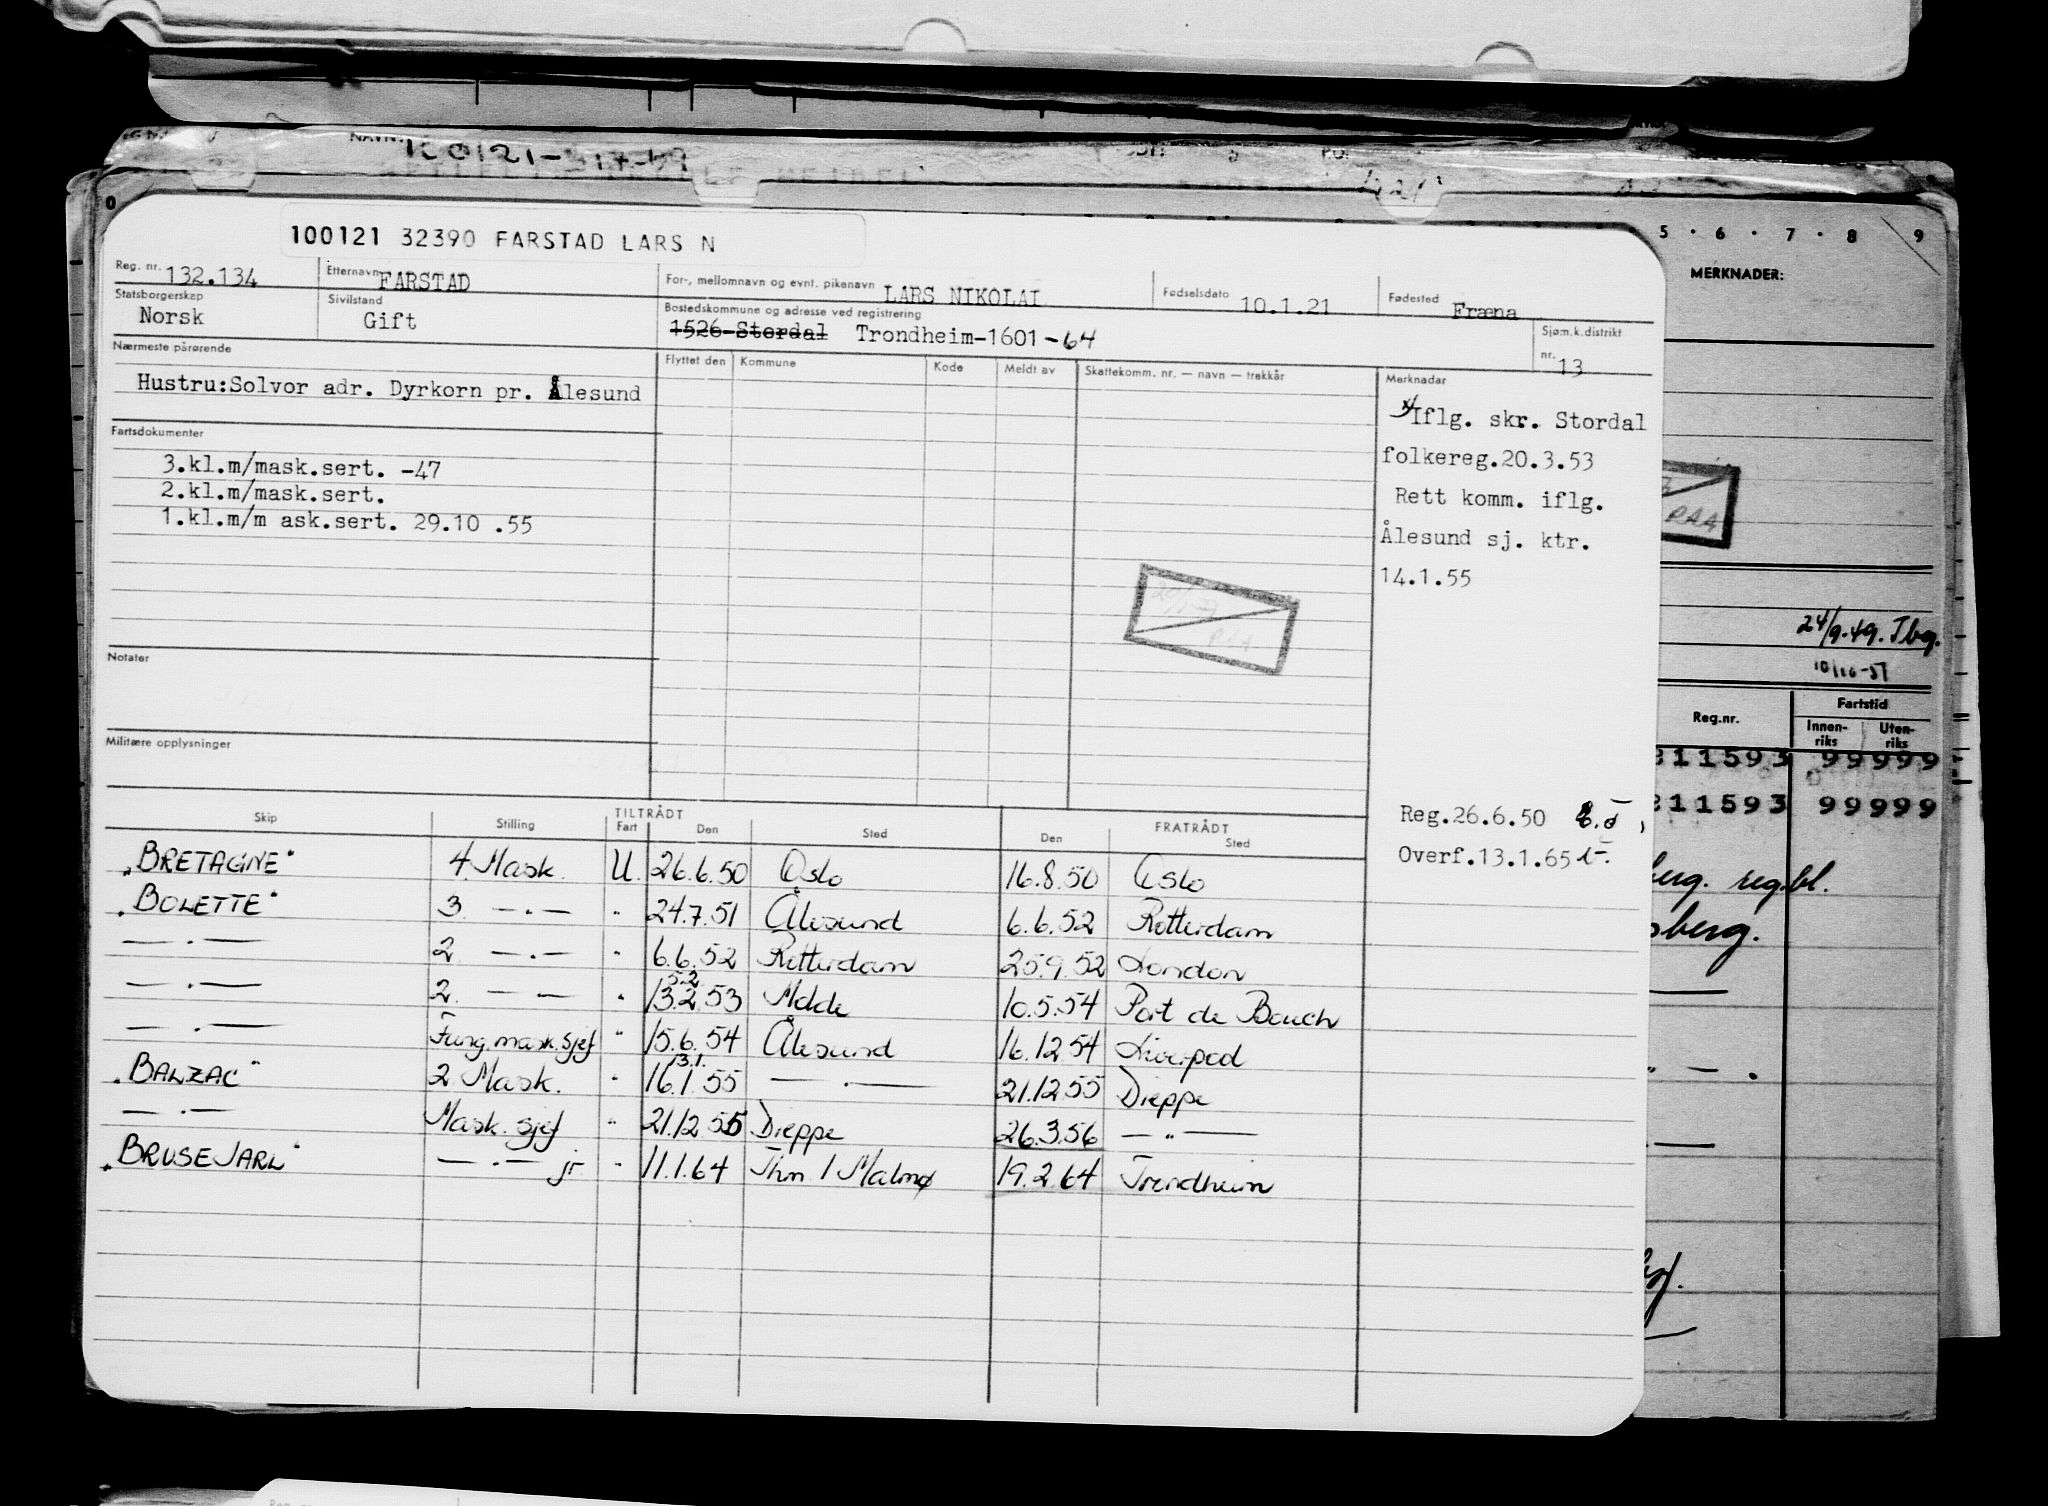 100121 32390 FARSTAD LARS N
Reg. nr. 132.134 Etternavn FARSTAD For-, mellomnavn og evnt. pikenavn LARS NIKOLAI Fødselsdato 10.1.21 Fødested Fræna
Statsborgerskap Norsk Sivilstand Gift Bostedskommune og adresse ved registrering 1526-Stordal Trondheim-1601-64 Sjøm.k.distrikt nr. 13
Nærmeste pårørende Flyttet den Kommune Kode Meldt av Skattekomm. nr. — navn — trekkår Merknadar
Hustru:Solvor adr. Dyrkorn pr. Ålesund
Iflg. skr. Stordal
folkereg.20.3.53
Rett komm. iflg.
Ålesund sj. ktr.
14.1.55
Fartsdokumenter
3.kl.m/mask.sert. -47
2.kl.m/mask.sert.
1.kl.m/m ask.sert. 29.10 .55
PAA
Notater
Militære opplysninger
Reg.26.6.50
Overf.13.1.65
Skip Stilling TILTRÅDT Fart Den Sted FRATRÅDT Den Sted
"BRETAGNE" 4. Mask. U. 26.6.50 Oslo 16.8.50 Oslo
"BOLETTE" 3 — . — " 24.7.51 Ålesund 6.6.52 Rotterdam
— . — 2 — . — " 6.6.52 Rotterdam 25.9.52 London
— . — 2. — — " 5.2. 13.2.53 Molde 10.5.54 Port de Bouch
— . — Fung. mask.sjef " 15.6.54 Ålesund 16.12.54 Liverpool
"BALZAC" 2 Mask. " 13.1. 16.1.55 — . — 21.12.55 Dieppe
— . — Mask. sjef " 21.12.55 Dieppe 26.3.56 — " —
"BRUSE JARL" — . — jr. " 11.1.64 Thm / Malmø 19.2.64 Trondheim
5 · 6 · 7 · 8 9
MERKNADER:
PAA
24/9.49. Tbg.
10/10-51
Reg.nr. Fartstid
Innenriks Utenriks
211593 99999
211593 99999
berg. reg.bl.
sberg.